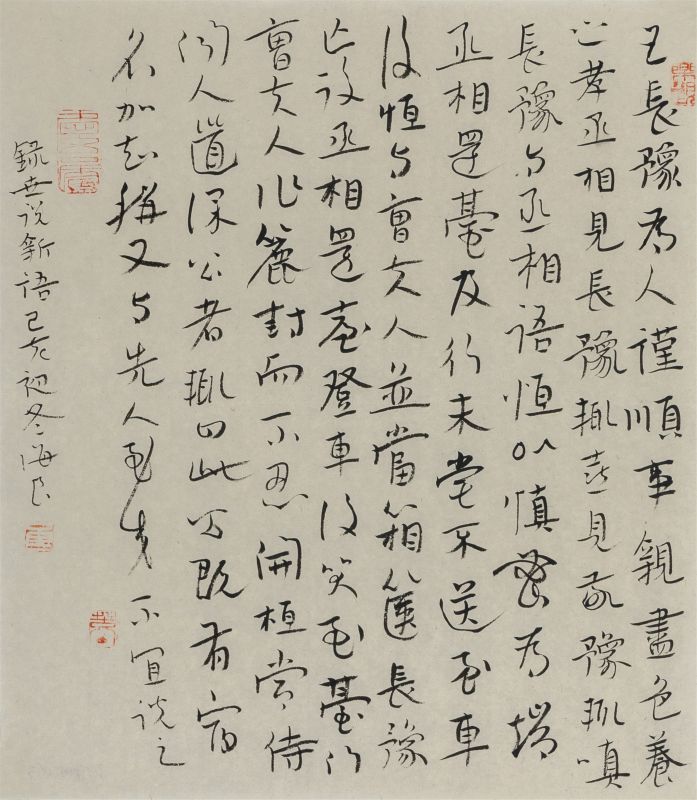 王長豫为人謹順事親盡色養
之孝丞相見長豫輒喜見敬豫輒嗔
長豫与丞相語恒以慎密为端
丞相還臺及行未嘗不送至車
後恒与曹夫人並當箱篋長豫
亡後丞相還臺登車後哭至臺门
曹夫人作簏封而不忍開桓常侍
闻人道深公者輒曰此公既有宿
名加知稱又与先人至交不宜說之
錄世说新語己亥初冬海良